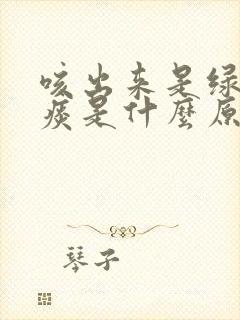 咳出来是绿
痰是什麼原
琴子